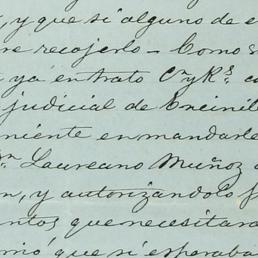 , y que si alguno de e
re recojerlo – Como s
ya en trato Cn y Rs. ca
judicial de Encinil
niente en mandarle
n Laureano Muñoz
n, y autorizandolo f
ntos que necesitara
rmó que si esperaba